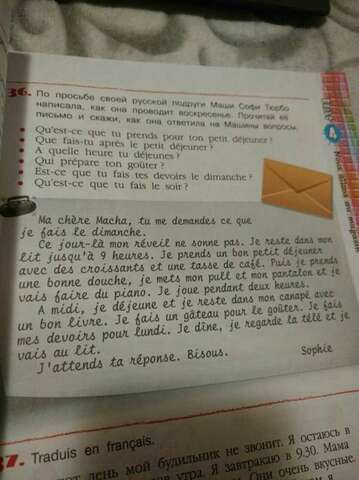 36. По просьбе своей русской подруги Маши Софи Тюрбо
написала, как она проводит воскресенье. Прочитай её
письмо и скажи, как она ответила на Машины вопросы.
• Qu'est-ce que tu prends pour ton petit déjeuner?
• Que fais-tu après le petit déjeuner?
• A quelle heure tu déjeunes?
• Qui prépare ton goûter?
• Est-ce que tu fais tes devoirs le dimanche?
• Qu'est-ce que tu fais le soir?
Ma chère Macha, tu me demandes ce que
je fais le dimanche.
Ce jour-là mon réveil ne sonne pas. Je reste dans mon
lit jusqu'à 9 heures. Je prends un bon petit déjeuner
avec des croissants et une tasse de café. Puis je prends
une bonne douche, je mets mon pull et mon pantalon et je
vais faire du piano. Je joue pendant deux heures.
A midi, je déjeune et je reste dans mon canapé avec
un bon livre. Je fais un gâteau pour le goûter. Je fais
mes devoirs pour lundi. Je dîne, je regarde la télé et je
vais au lit.
J'attends ta réponse. Bisous. Sophie
37. Traduis en français.
день мой будильник не звонит. Я остаюсь в
утра. Я завтракаю в 9.30. Мама
Они очень вкусные.